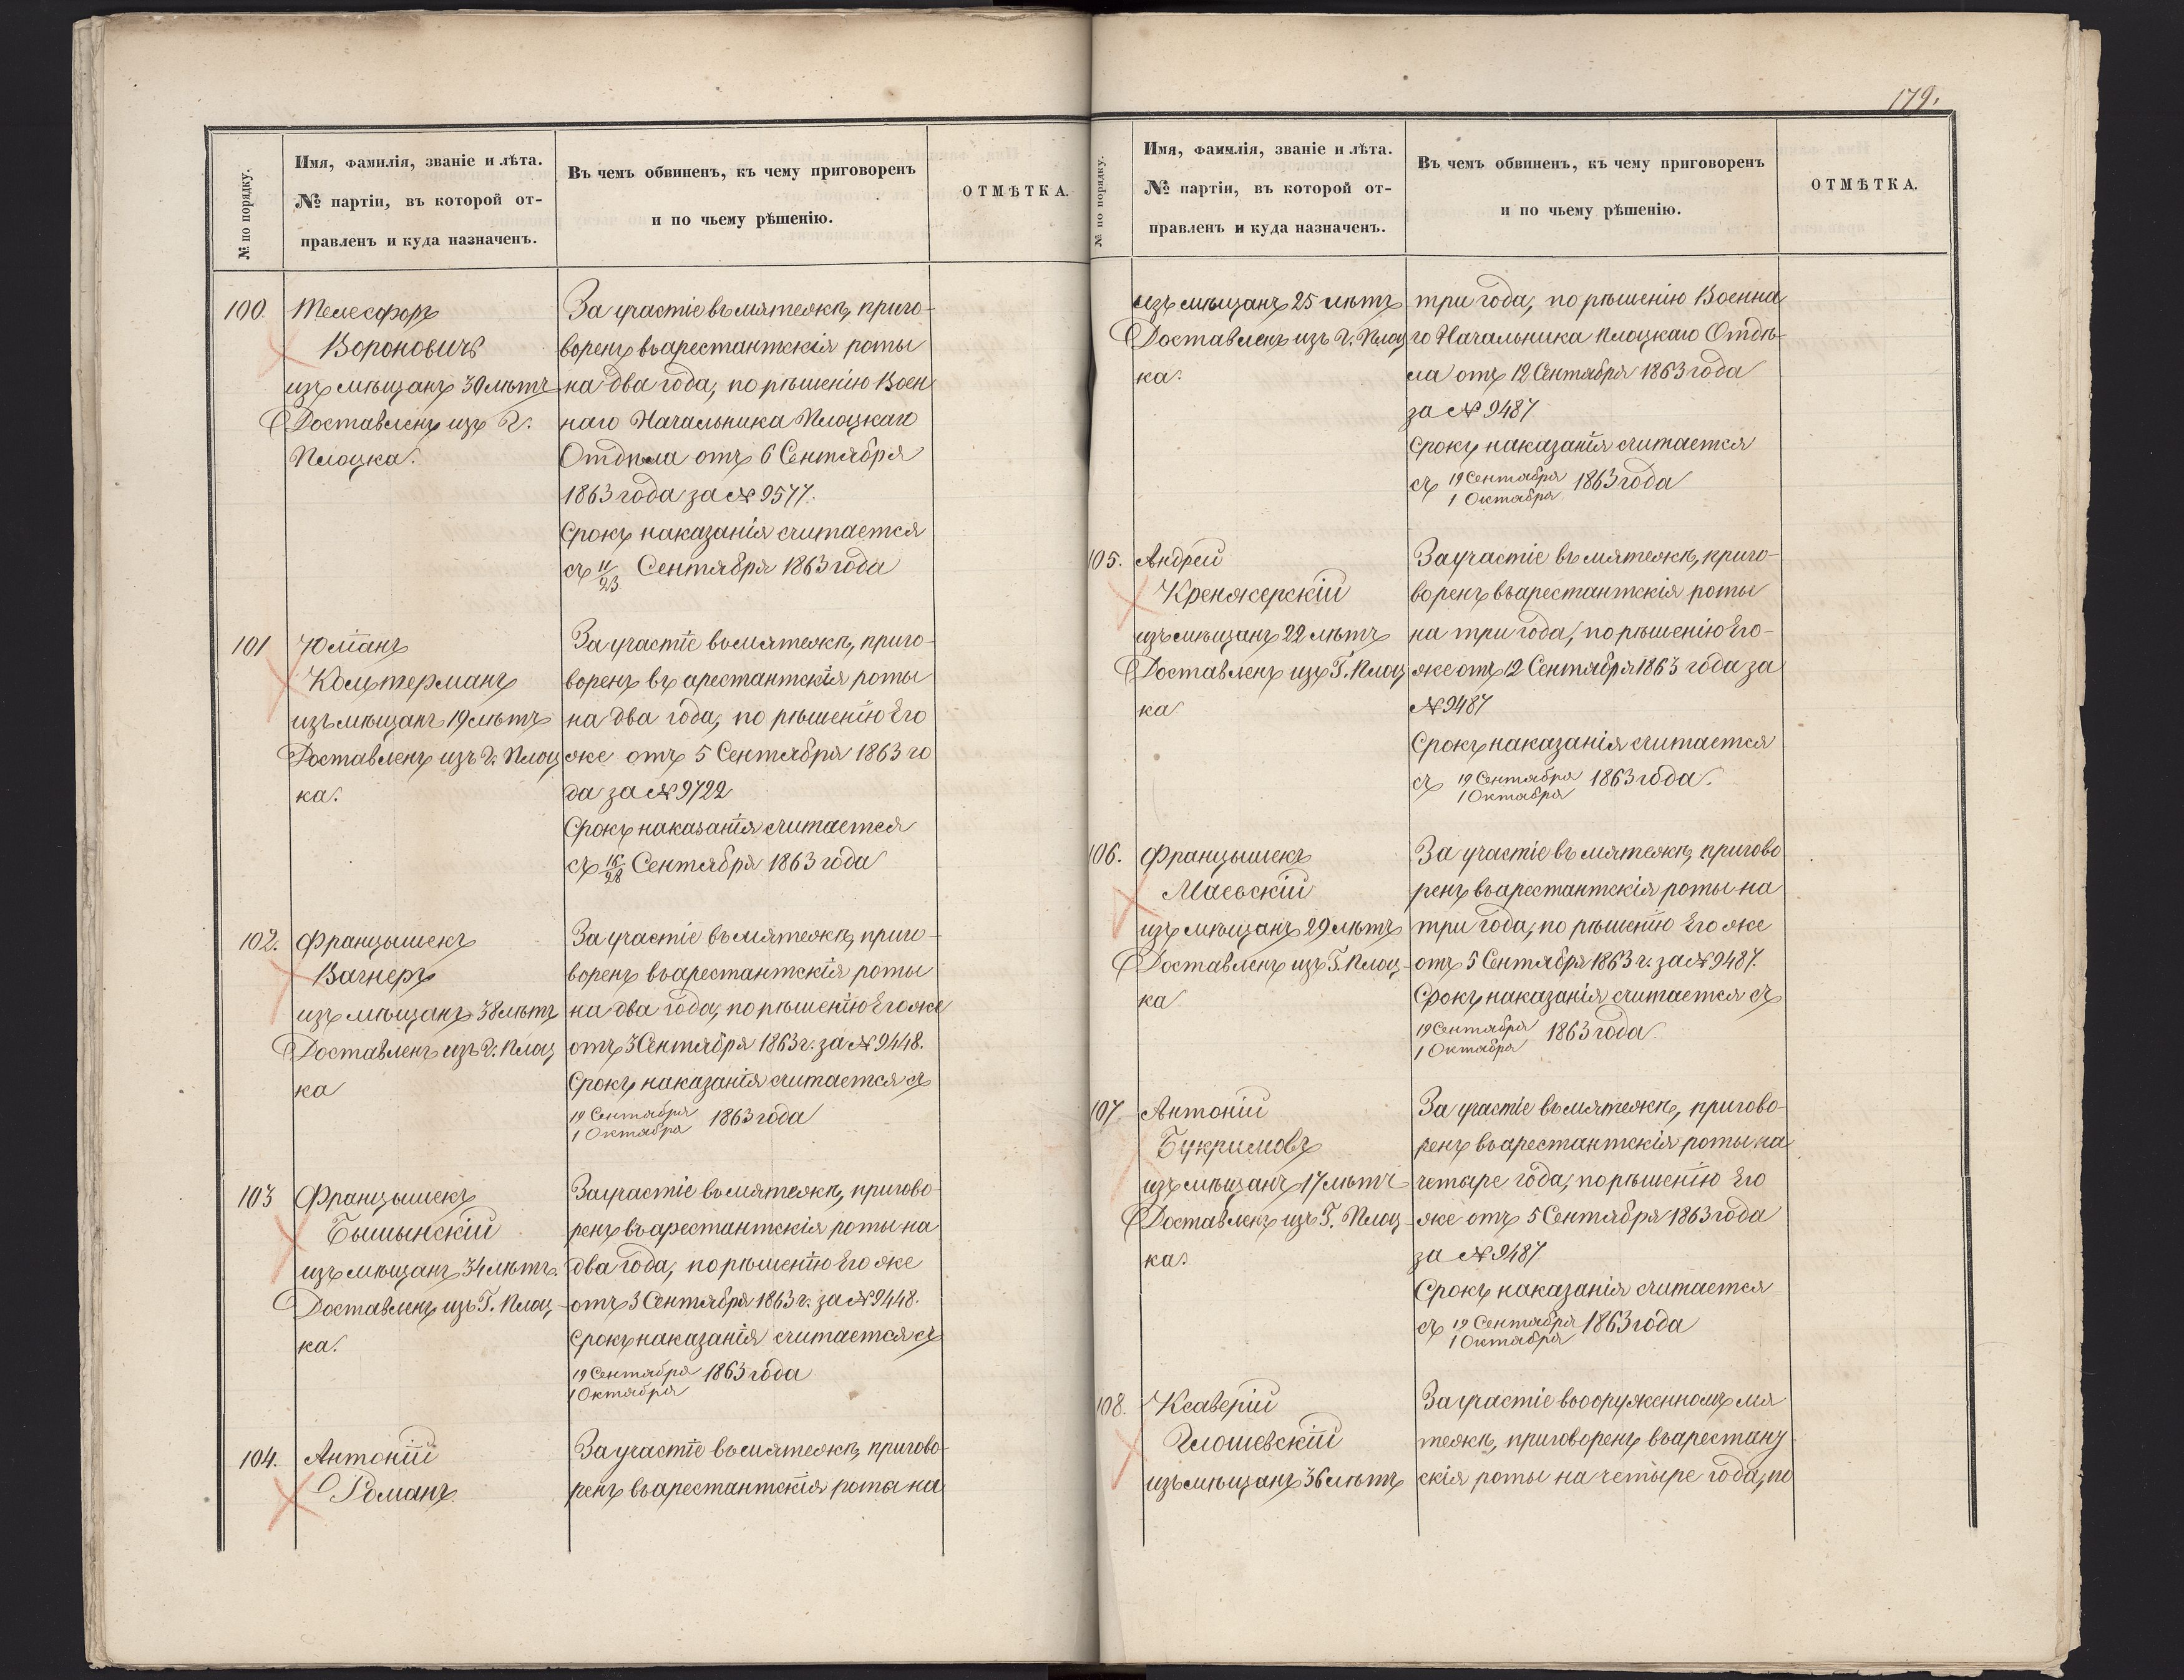 179.
№ по порядку.
Имя, фамилія, званіе и лѣта.
№ партіи, въ которой от-
правленъ и куда назначенъ.
Въ чемъ обвиненъ, къ чему приговоренъ
и по чьему рѣшенію.
ОТМѢТКА.
100.
Телесфоръ
Вороновичъ
изъ мѣщанъ 30 лѣтъ
Доставленъ изъ г.
Плоцка.
За участіе въ мятежѣ, приго-
воренъ въ арестантскія роты
на два года, по рѣшенію Воен
наго Начальника Плоцкаго
Отдѣла отъ 6 Сентября
1863 года за № 9577.
Срокъ наказанія считается
съ 11/23 Сентября 1863 года
101
Юліанъ
изъ мѣщанъ 19 лѣтъ
Доставленъ изъ г. Плоц
ка.
За участіе въ мятежѣ, приго-
воренъ въ арестантскія роты
на два года, по рѣшенію Его
же отъ 5 Сентября 1863 го
да за № 9722
Срокъ наказанія считается
съ 16/28 Сентября 1863 года
102.
Францышекъ
Вагнеръ
изъ мѣщанъ 38 лѣтъ
Доставленъ изъ г. Плоц
ка
За участіе въ мятежѣ, приго-
воренъ въ арестантскія роты
на два года, по рѣшенію Его же
отъ 3 Сентября 1863 г. за № 9448.
Срокъ наказанія считается съ
19 Сентября
1 Октября 1863 года
103
Францышекъ
изъ мѣщанъ 34 лѣтъ.
Доставленъ изъ Г. Плоц-
ка.
За участіе въ мятежѣ, пригово-
ренъ въ арестантскія роты на
два года, по рѣшенію Его же
отъ 3 Сентября 1863 г. за № 9448.
Срокъ наказанія считается съ
19 Сентября
1 Октября 1863 года
104.
Антоній
Романъ
За участіе въ мятежѣ, пригово-
ренъ въ арестантскія роты на
№ по порядку.
Имя, фамилія, званіе и лѣта.
№ партіи, въ которой от-
правленъ и куда назначенъ.
Въ чемъ обвиненъ, къ чему приговоренъ
и по чьему рѣшенію.
ОТМѢТКА.
изъ мѣщанъ 25 лѣтъ
Доставленъ изъ г. Плоц
ка.
три года, по рѣшенію Военна
го Начальника Плоцкаго Отдѣ-
ла отъ 12 Сентября 1863 года
за № 9487
Срокъ наказанія считается
съ 19 Сентября
1 Октября 1863 года
105.
Андрей
Кренжерскій
изъ мѣщанъ 22 лѣтъ
Доставленъ изъ Г. Плоц
ка
За участіе въ мятежѣ, приго-
воренъ въ арестантскія роты
на три года, по рѣшенію Его-
же отъ 12 Сентября 1863 года за
№ 9487
Срокъ наказанія считается
съ 19 Сентября
1 Октября 1863 года.
106.
Францышекъ
Маевскій
изъ мѣщанъ 29 лѣтъ
Доставленъ изъ Г. Плоц-
ка
За участіе въ мятежѣ, пригово
ренъ въ арестантскія роты на
три года, по рѣшенію Его же
отъ 5 Сентября 1863 г. за № 9487.
Срокъ наказанія считается съ
19 Сентября
1 Октября 1863 года.
107.
Антоній
Букримовъ
изъ мѣщанъ 17 лѣтъ
Доставленъ изъ Г. Плоц-
ка.
За участіе въ мятежѣ, пригово-
ренъ въ арестантскія роты на
четыре года, по рѣшенію Его
же отъ 5 Сентября 1863 года
за № 9487
Срокъ наказанія считается
съ 19 Сентября
1 Октября 1863 года
108.
Ксаверій
изъ мѣщанъ 36 лѣтъ
За участіе въ оружейномъ мя
тежѣ, приговоренъ въ арестант
скія роты на четыре года, по